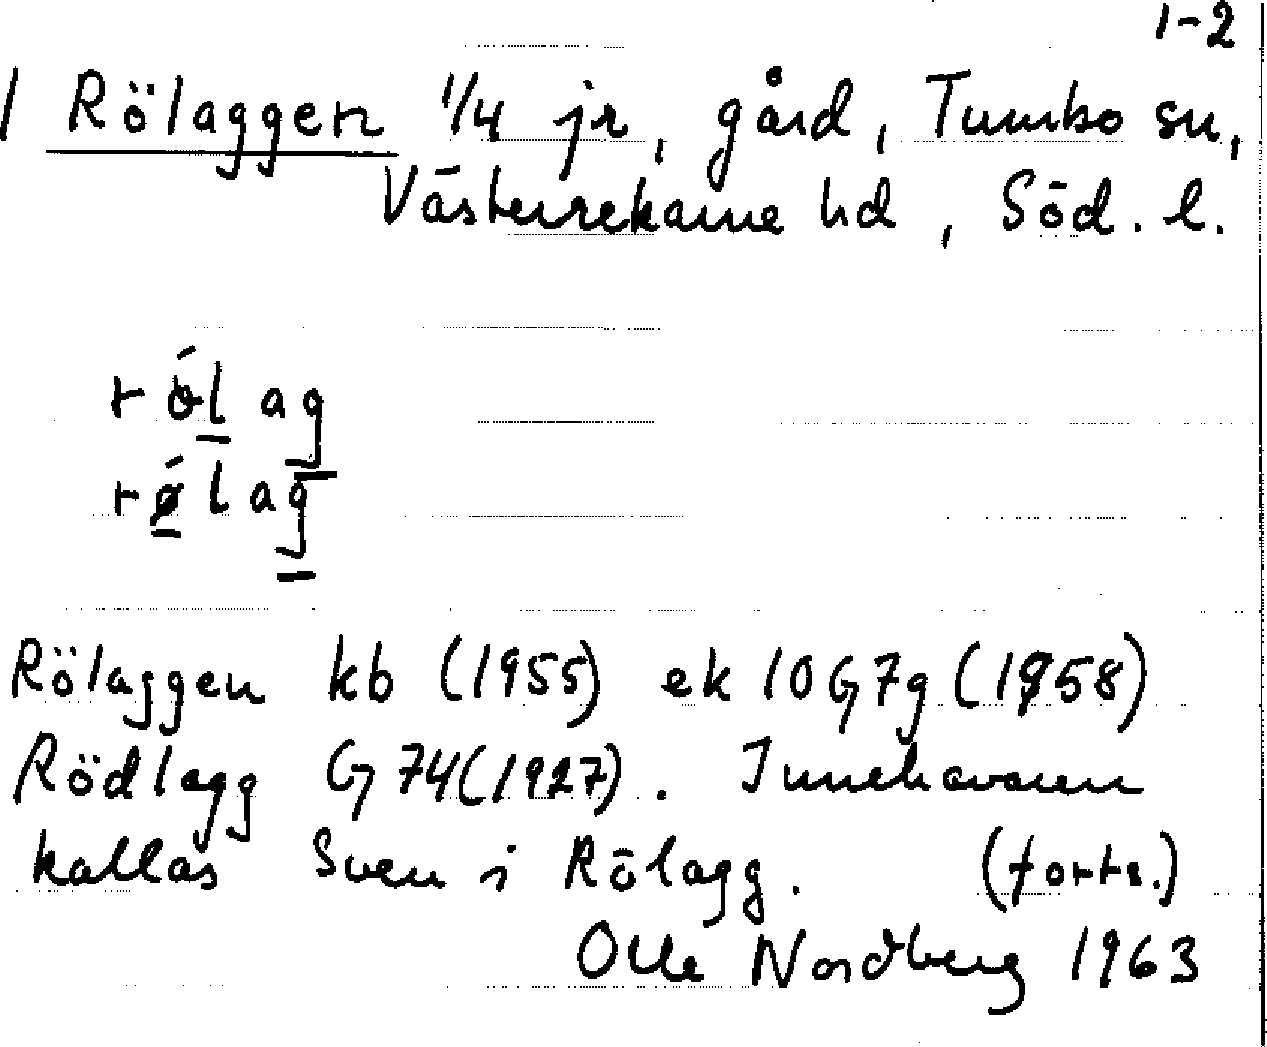 1-2
1 Rölaggen 1/4 jr, gård, Tumbo sn,
Västerrekarne hd, Söd. l.
rǿlag
rǿlag
Rölaggen kb (1955) ek 10G7g (1958)
Rödlagg G74 (1927). Innehavaren
kallas Sven i Rölagg. (forts.)
Olle Nordberg 1963